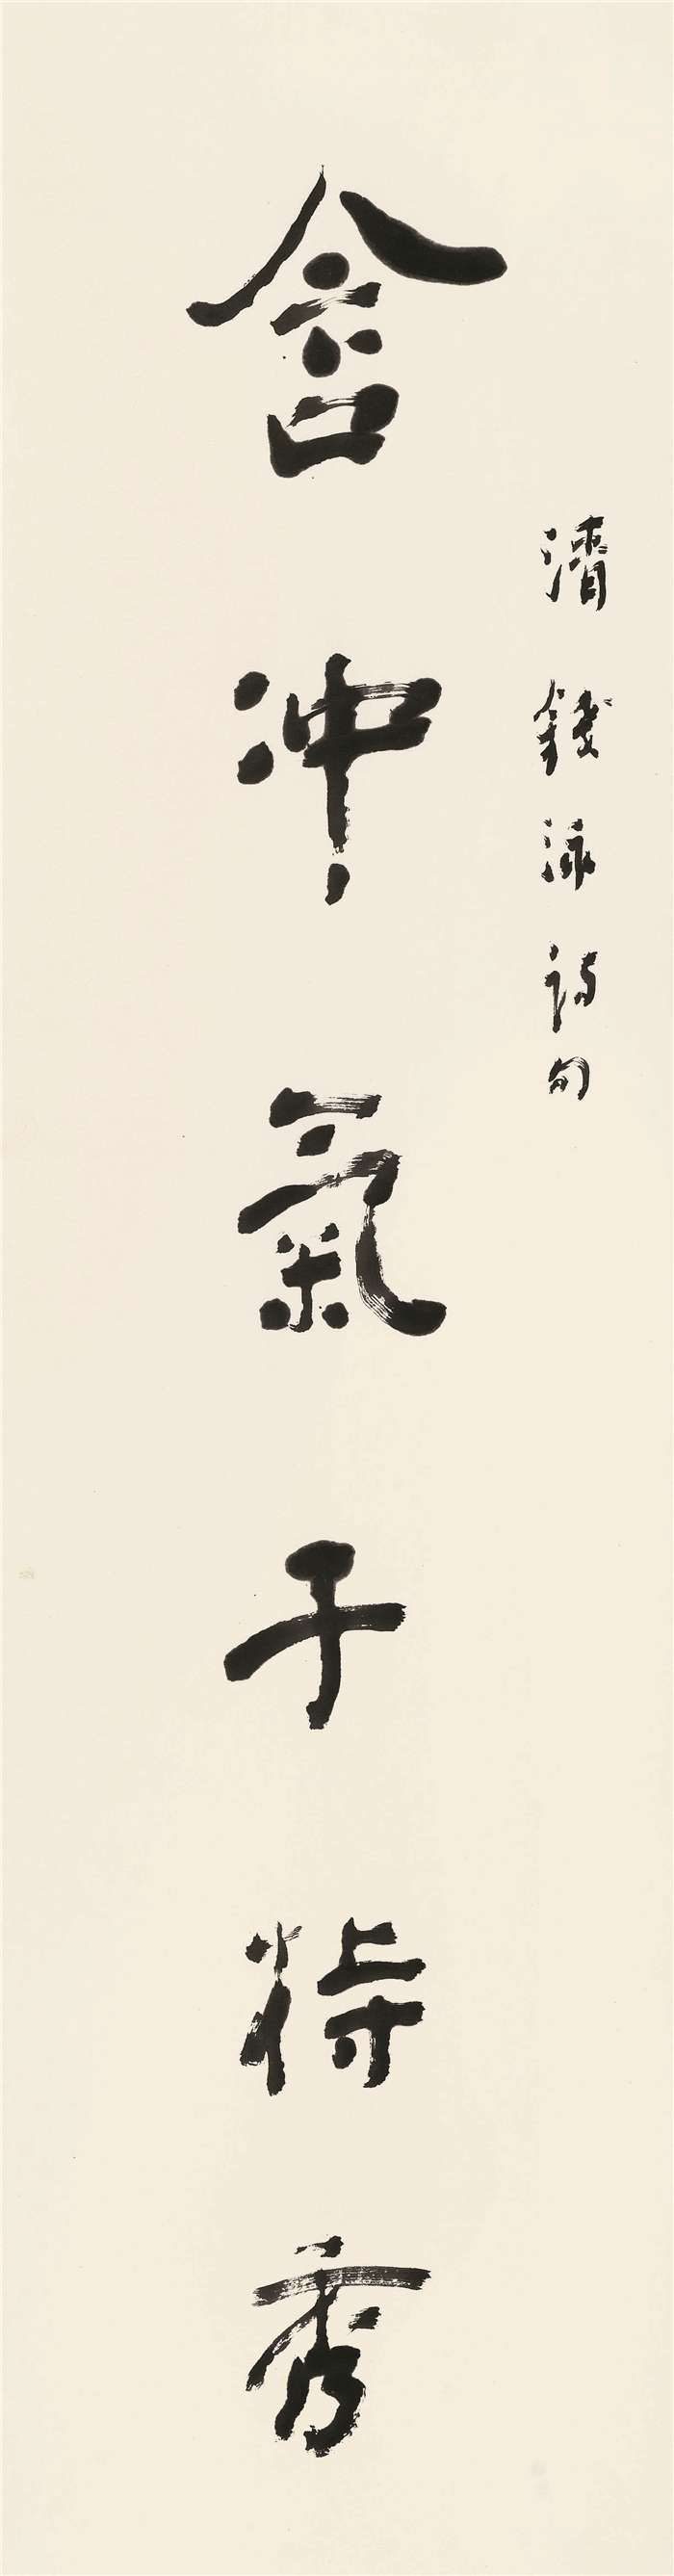 清錢泳詩句
含冲氣于特秀